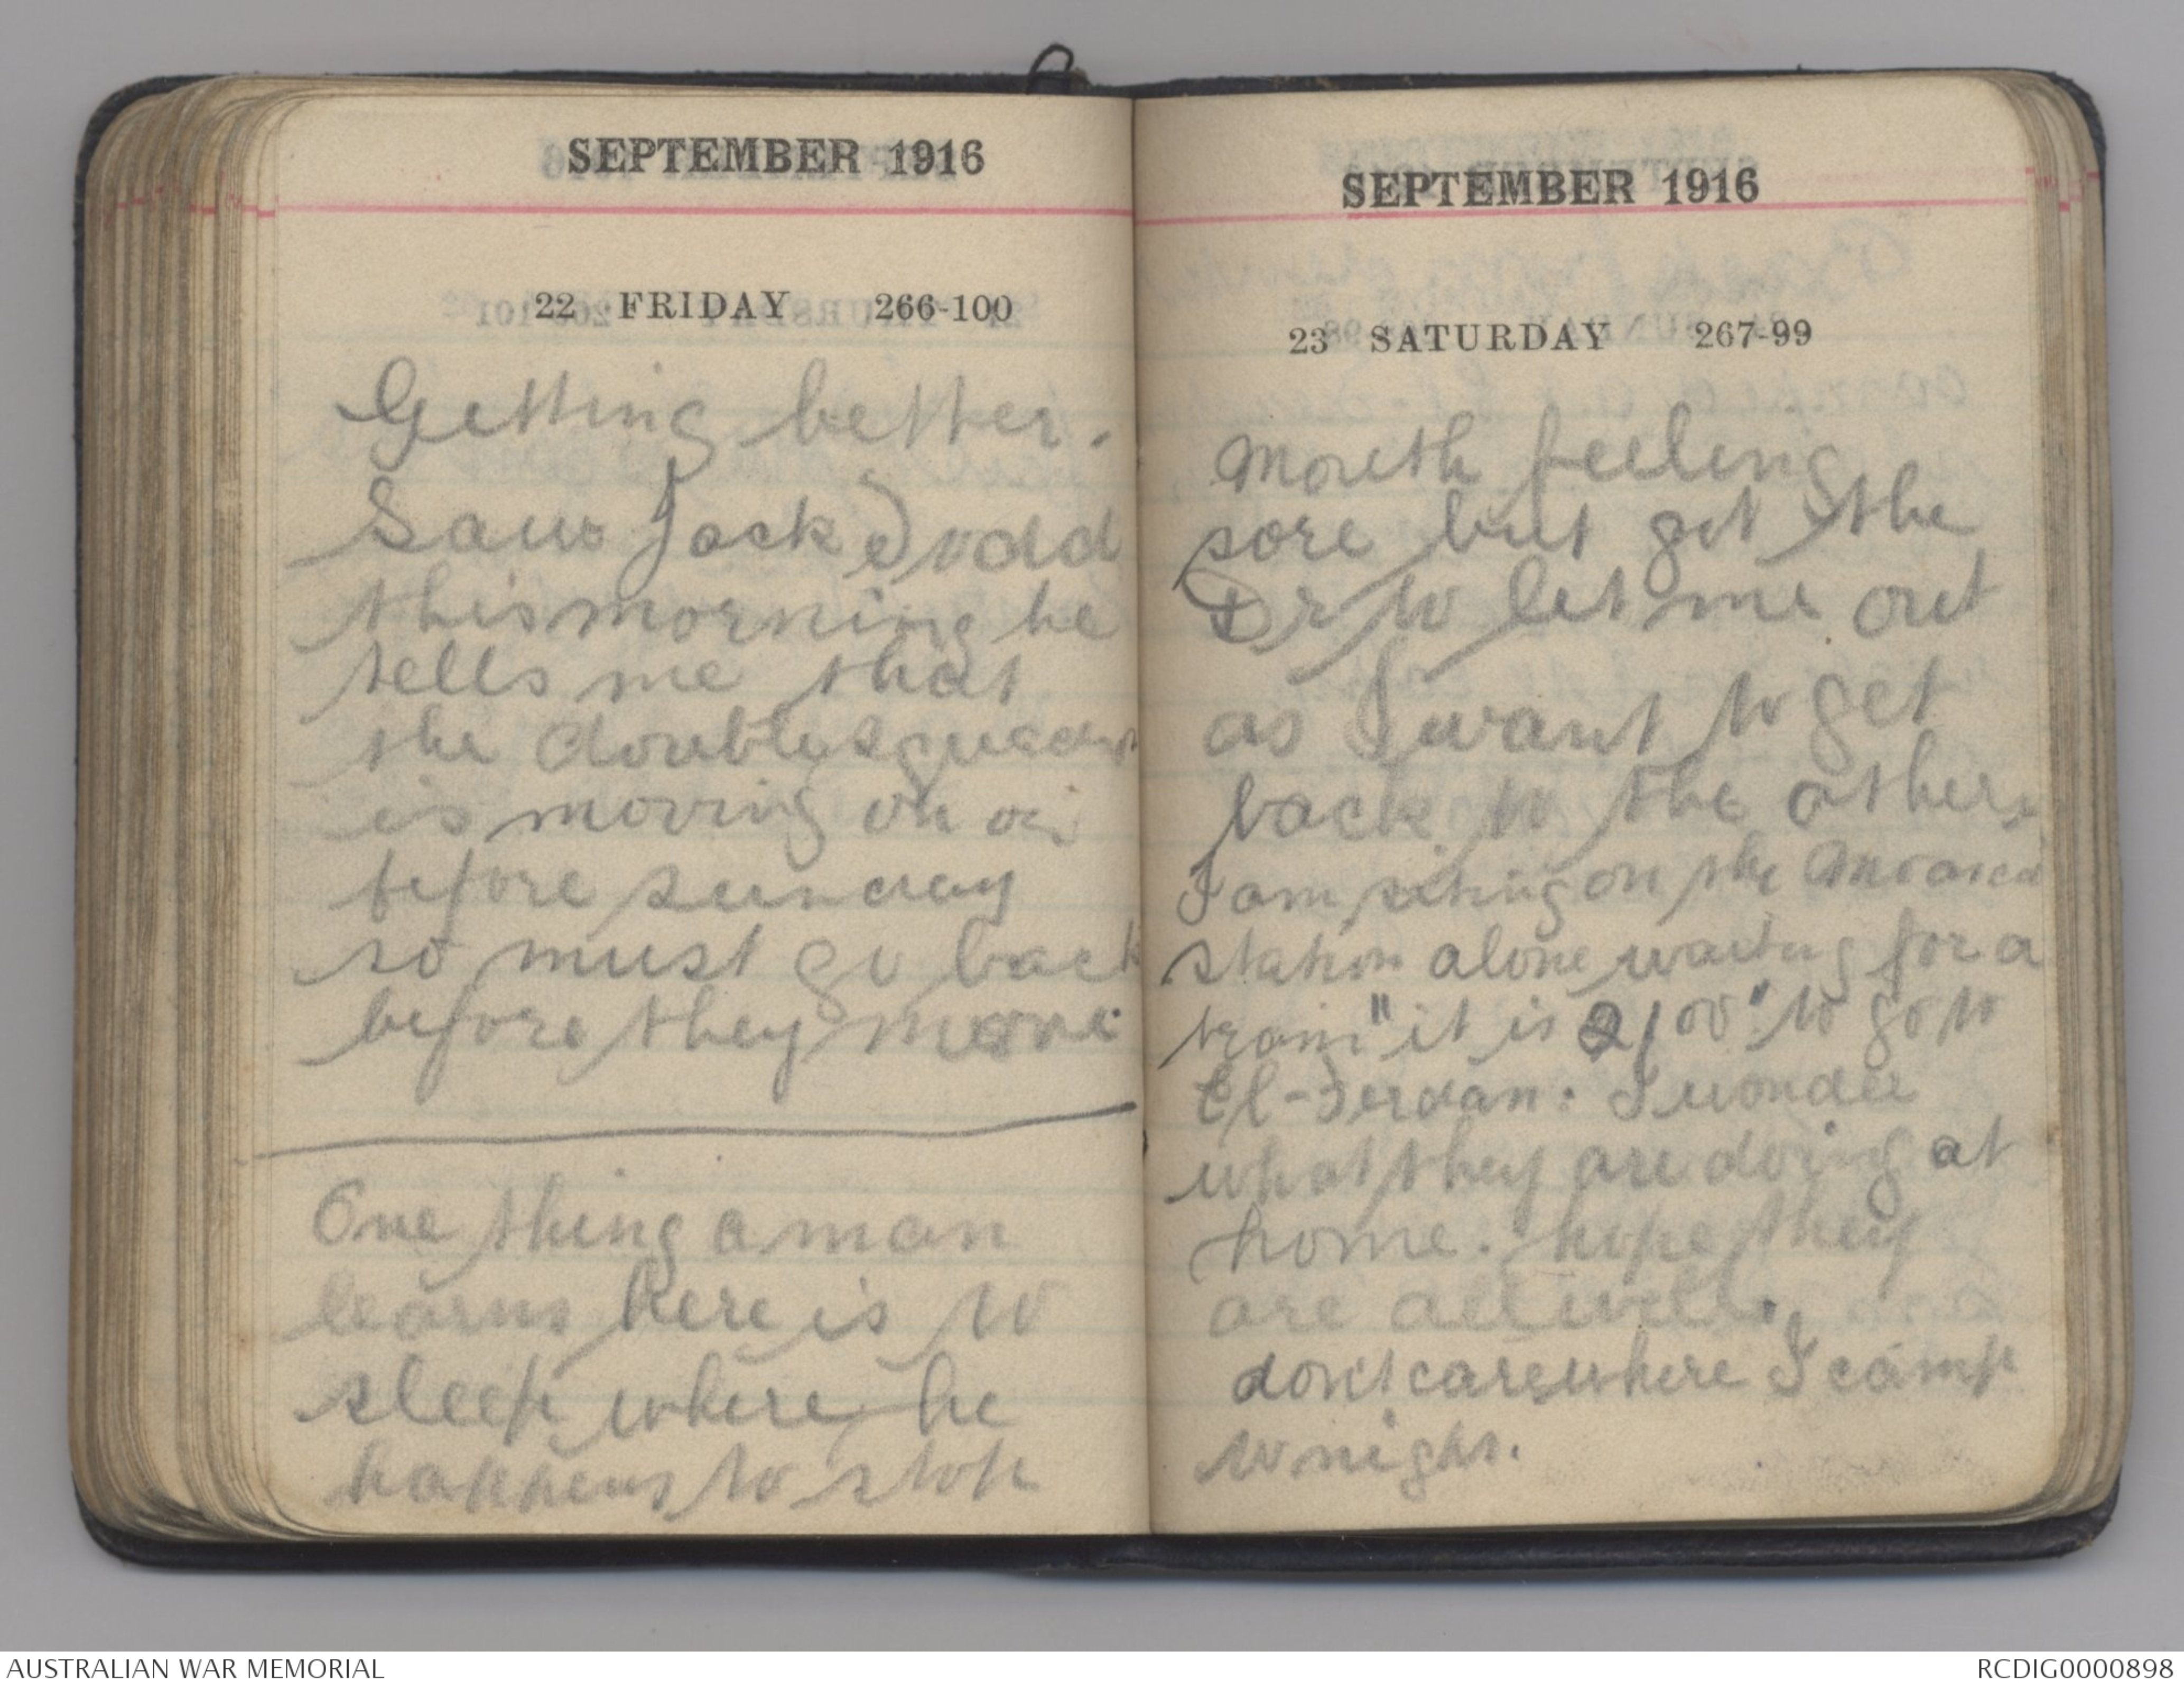 SEPTEMBER 1916
22 FRIDAY 266-100
Getting better.
Saw Jack Dodd
this morning he
tells me that
the double squadron
is moving on or
before sunday
so must go back
before they move
One thing a man
learns here is to
sleep where he
happens to stop
SEPTEMBER 1916
23 SATURDAY 267-99
Mouth feeling
sore but got the
Dr to let me out
as I want to get
back to the others
I am sitting on the Moascar
station alone waiting for a
train "it is 21/00" to go to
El-Ferdan: I wonder
what they are doing at
home. hope they
are all well.
don't care where I camp
to night.
AUSTRALIAN WAR MEMORIAL
RCDIG0000898